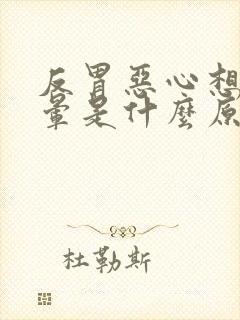 反胃惡心想
暈是什麼原
杜勒斯